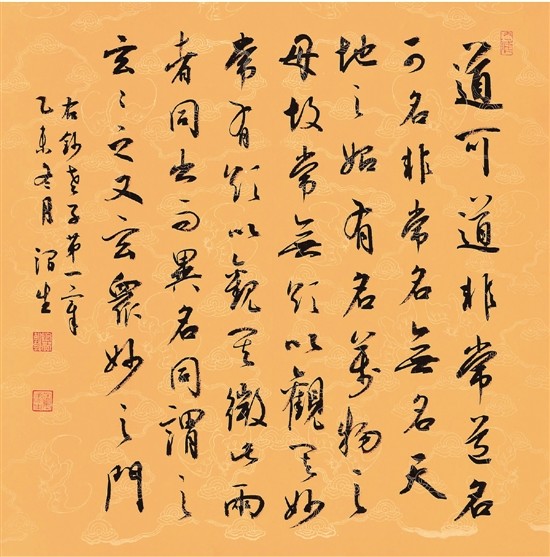 道可道非常道名
可名非常名無名天
地之始有名萬物之
母故常無欲以觀其妙
常有欲以觀其徼此兩
者同出而異名同謂之
玄〻之又玄眾妙之門
右鈔老子第一章
乙未冬月